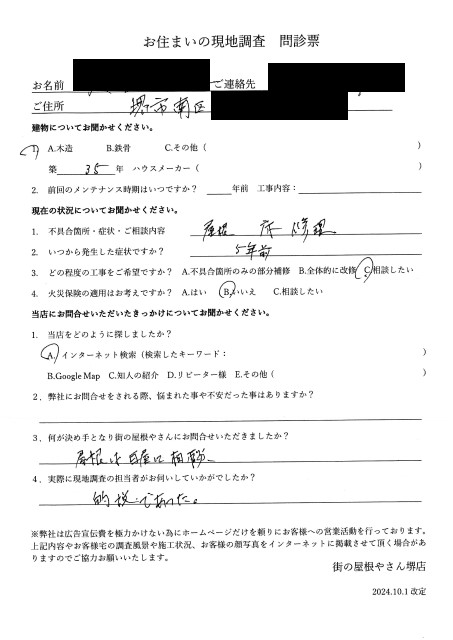 お住まいの現地調査 問診票
お名前 ご連絡先
ご住所 堺市南区
建物についてお聞かせください。
1. A.木造 B.鉄骨 C.その他（ ）
築 35 年 ハウスメーカー（ ）
2. 前回のメンテナンス時期はいつですか？ 年前 工事内容：
現在の状況についてお聞かせください。
1. 不具合箇所・症状・ご相談内容 屋根 修理
2. いつから発生した症状ですか？ 5年前
3. どの程度の工事をご希望ですか？ A.不具合箇所のみの部分補修 B.全体的に改修 C.相談したい
4. 火災保険の適用はお考えですか？ A.はい B.いいえ C.相談したい
当店にお問合せいただいたきっかけについてお聞かせください。
1. 当店をどのように探しましたか？
A.インターネット検索（検索したキーワード： ）
B.Google Map C.知人の紹介 D.リピーター様 E.その他（ ）
２．弊社にお問合せをされる際、悩まれた事や不安だった事はありますか？
３．何が決め手となり街の屋根やさんにお問合せいただきましたか？
屋根は
４．実際に現地調査の担当者がお伺いしていかがでしたか？
的確であった。
※弊社は広告宣伝費を極力かけない為にホームページだけを頼りにお客様への営業活動を行っております。
上記内容やお客様宅の調査風景や施工状況、お客様の顔写真をインターネットに掲載させて頂く場合があ
りますのでご協力お願いいたします。
街の屋根やさん堺店
2024.10.1 改定